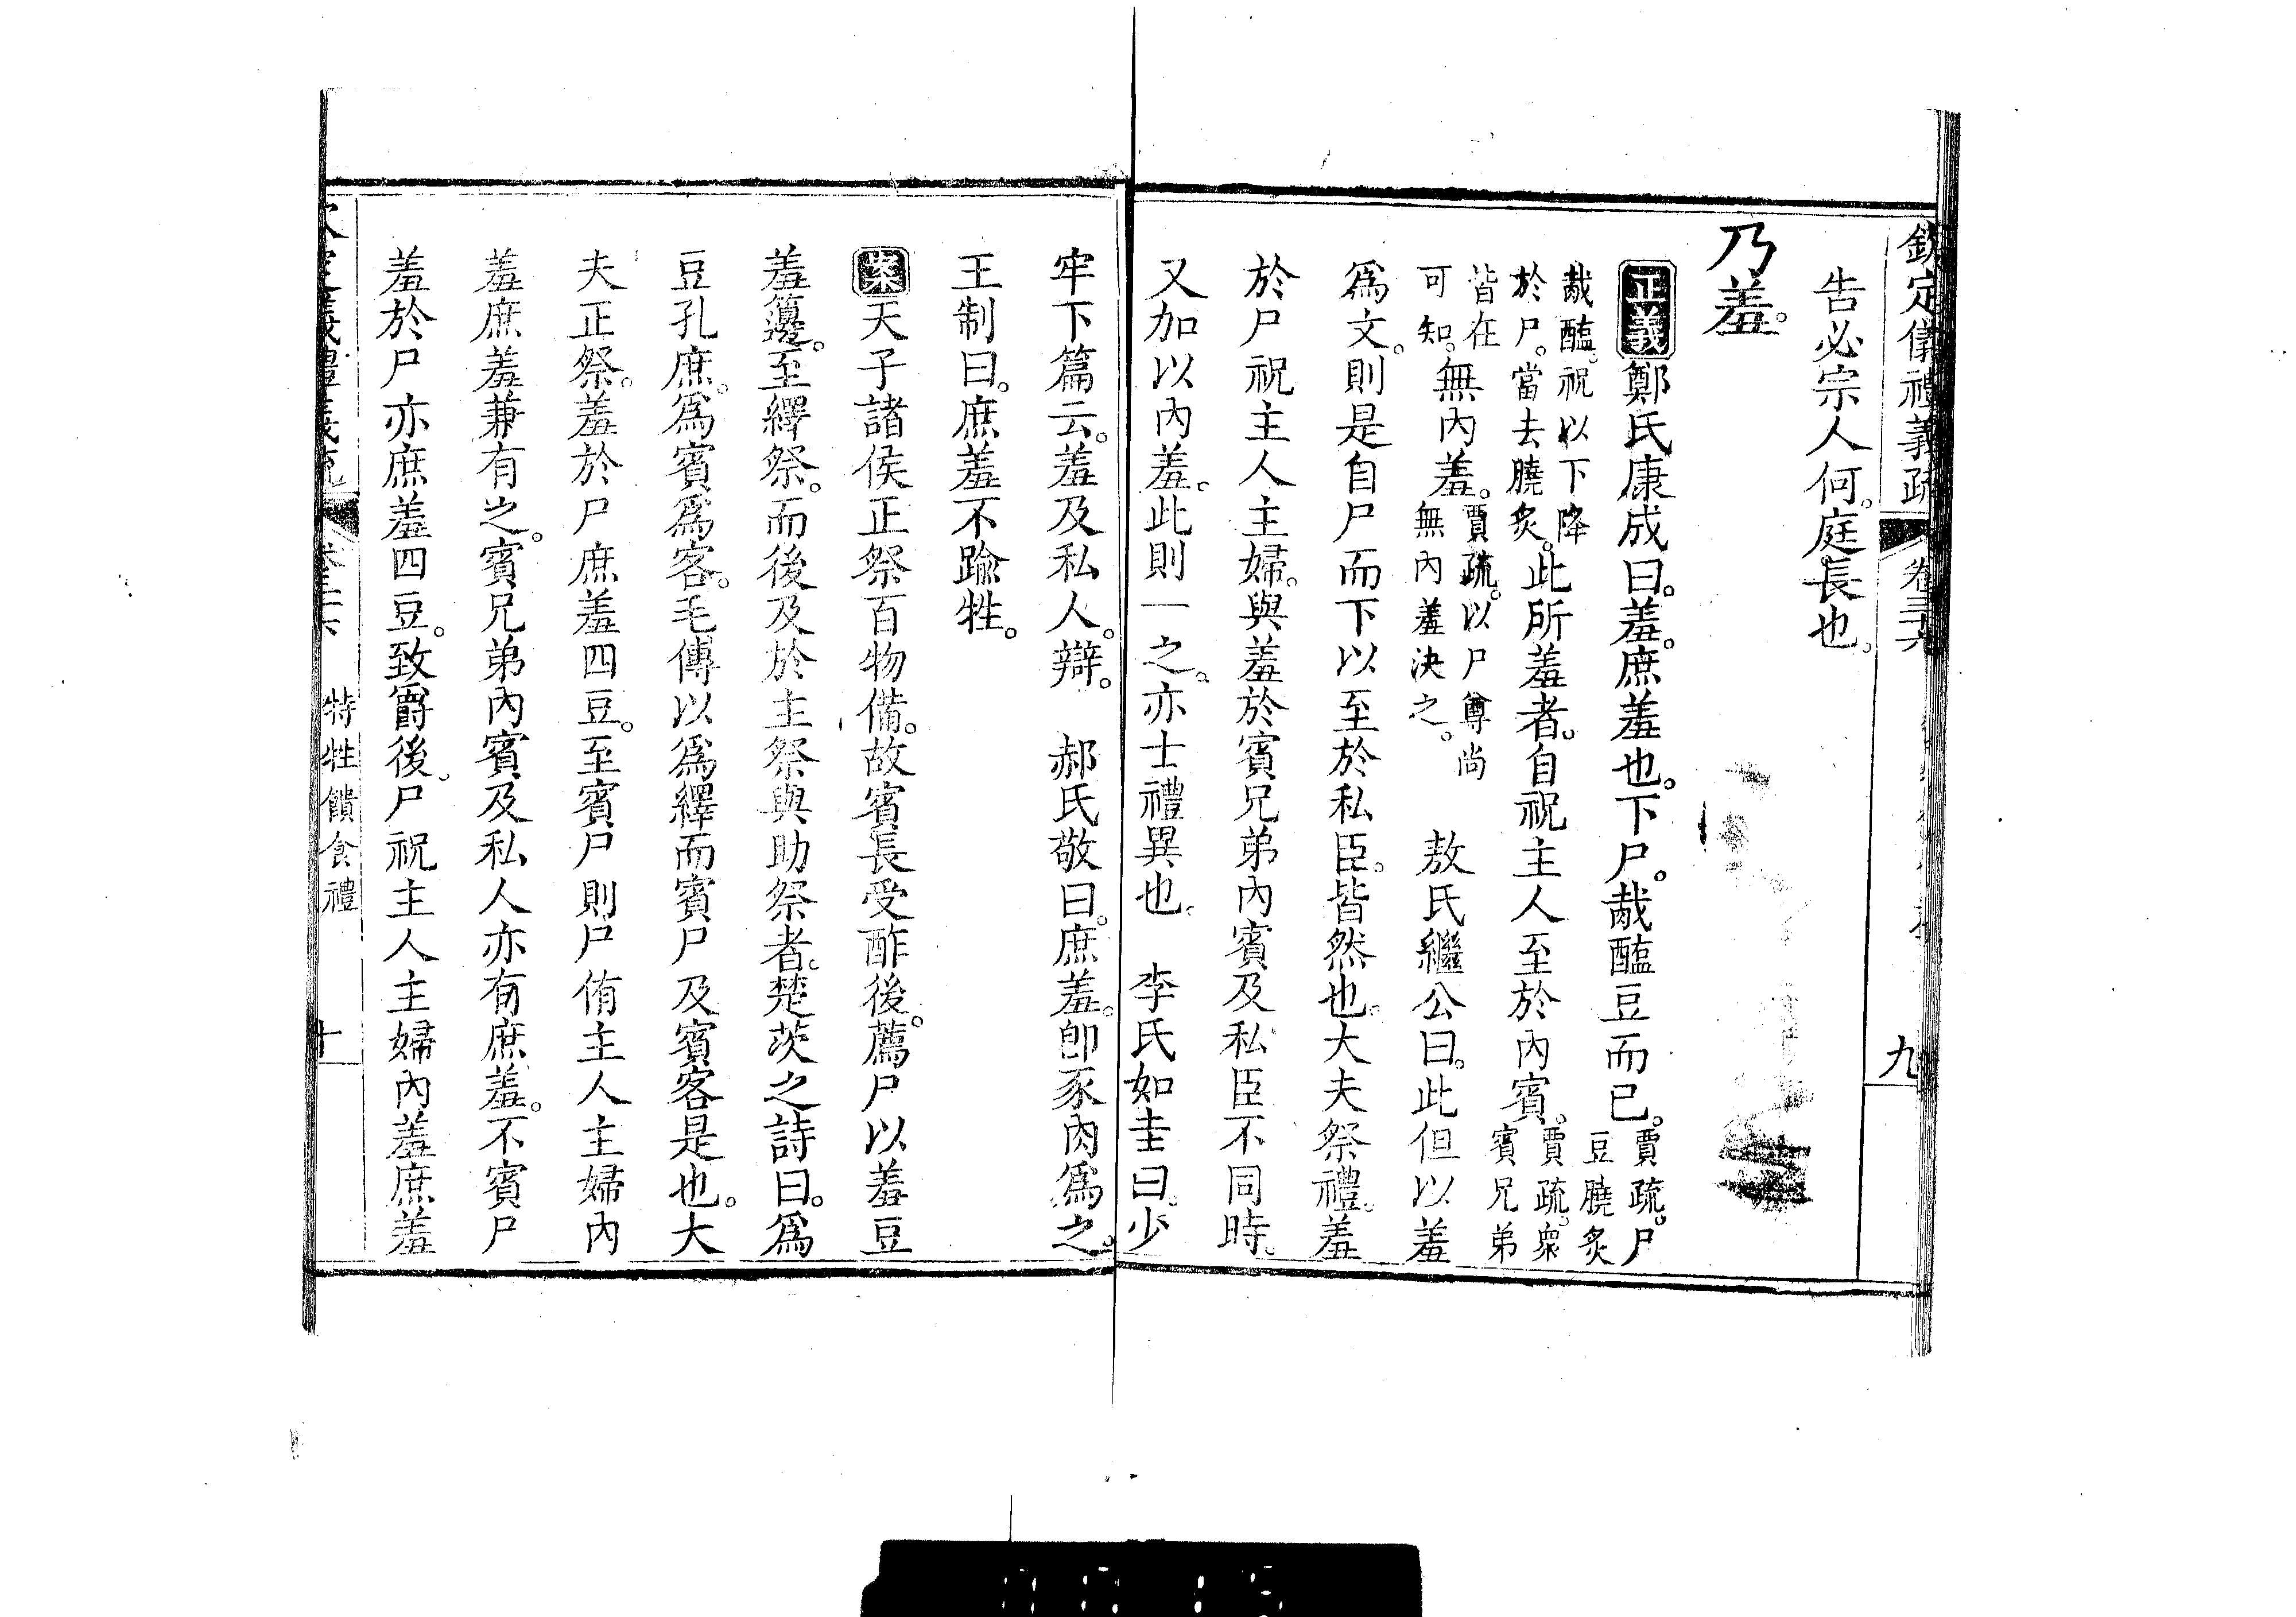 欽定儀禮義疏 卷三十六 九
告必宗人何庭長也。
乃羞。
正義鄭氏康成曰。羞。庶羞也。下尸。胾醢豆而已。賈疏。尸豆膮炙
胾醢。祝以下降於尸。當去膮炙。此所羞者。自祝主人至於內賓。賈疏。衆賓兄弟
皆在可知。無內羞。賈疏。以尸尊尚無內羞決之。 敖氏繼公曰。此但以羞
爲文。則是自尸而下以至於私臣。皆然也。大夫祭禮。羞
於尸祝主人主婦。與羞於賓兄弟內賓及私臣不同時。
又加以內羞。此則一之。亦士禮異也。 李氏如圭曰。少
牢下篇云。羞及私人。辯。 郝氏敬曰。庶羞。卽豕肉爲之。
王制曰。庶羞不踰牲。
案天子諸侯正祭百物備。故賓長受酢後。薦尸以羞豆
羞籩。至繹祭。而後及於主祭與助祭者。楚茨之詩曰。爲
豆孔庶。爲賓爲客。毛傳以爲繹而賓尸及賓客是也。大
夫正祭。羞於尸庶羞四豆。至賓尸則尸侑主人主婦內
羞庶羞兼有之。賓兄弟內賓及私人亦有庶羞。不賓尸
羞於尸亦庶羞四豆。致爵後。尸祝主人主婦內羞庶羞
特牲饋食禮 十